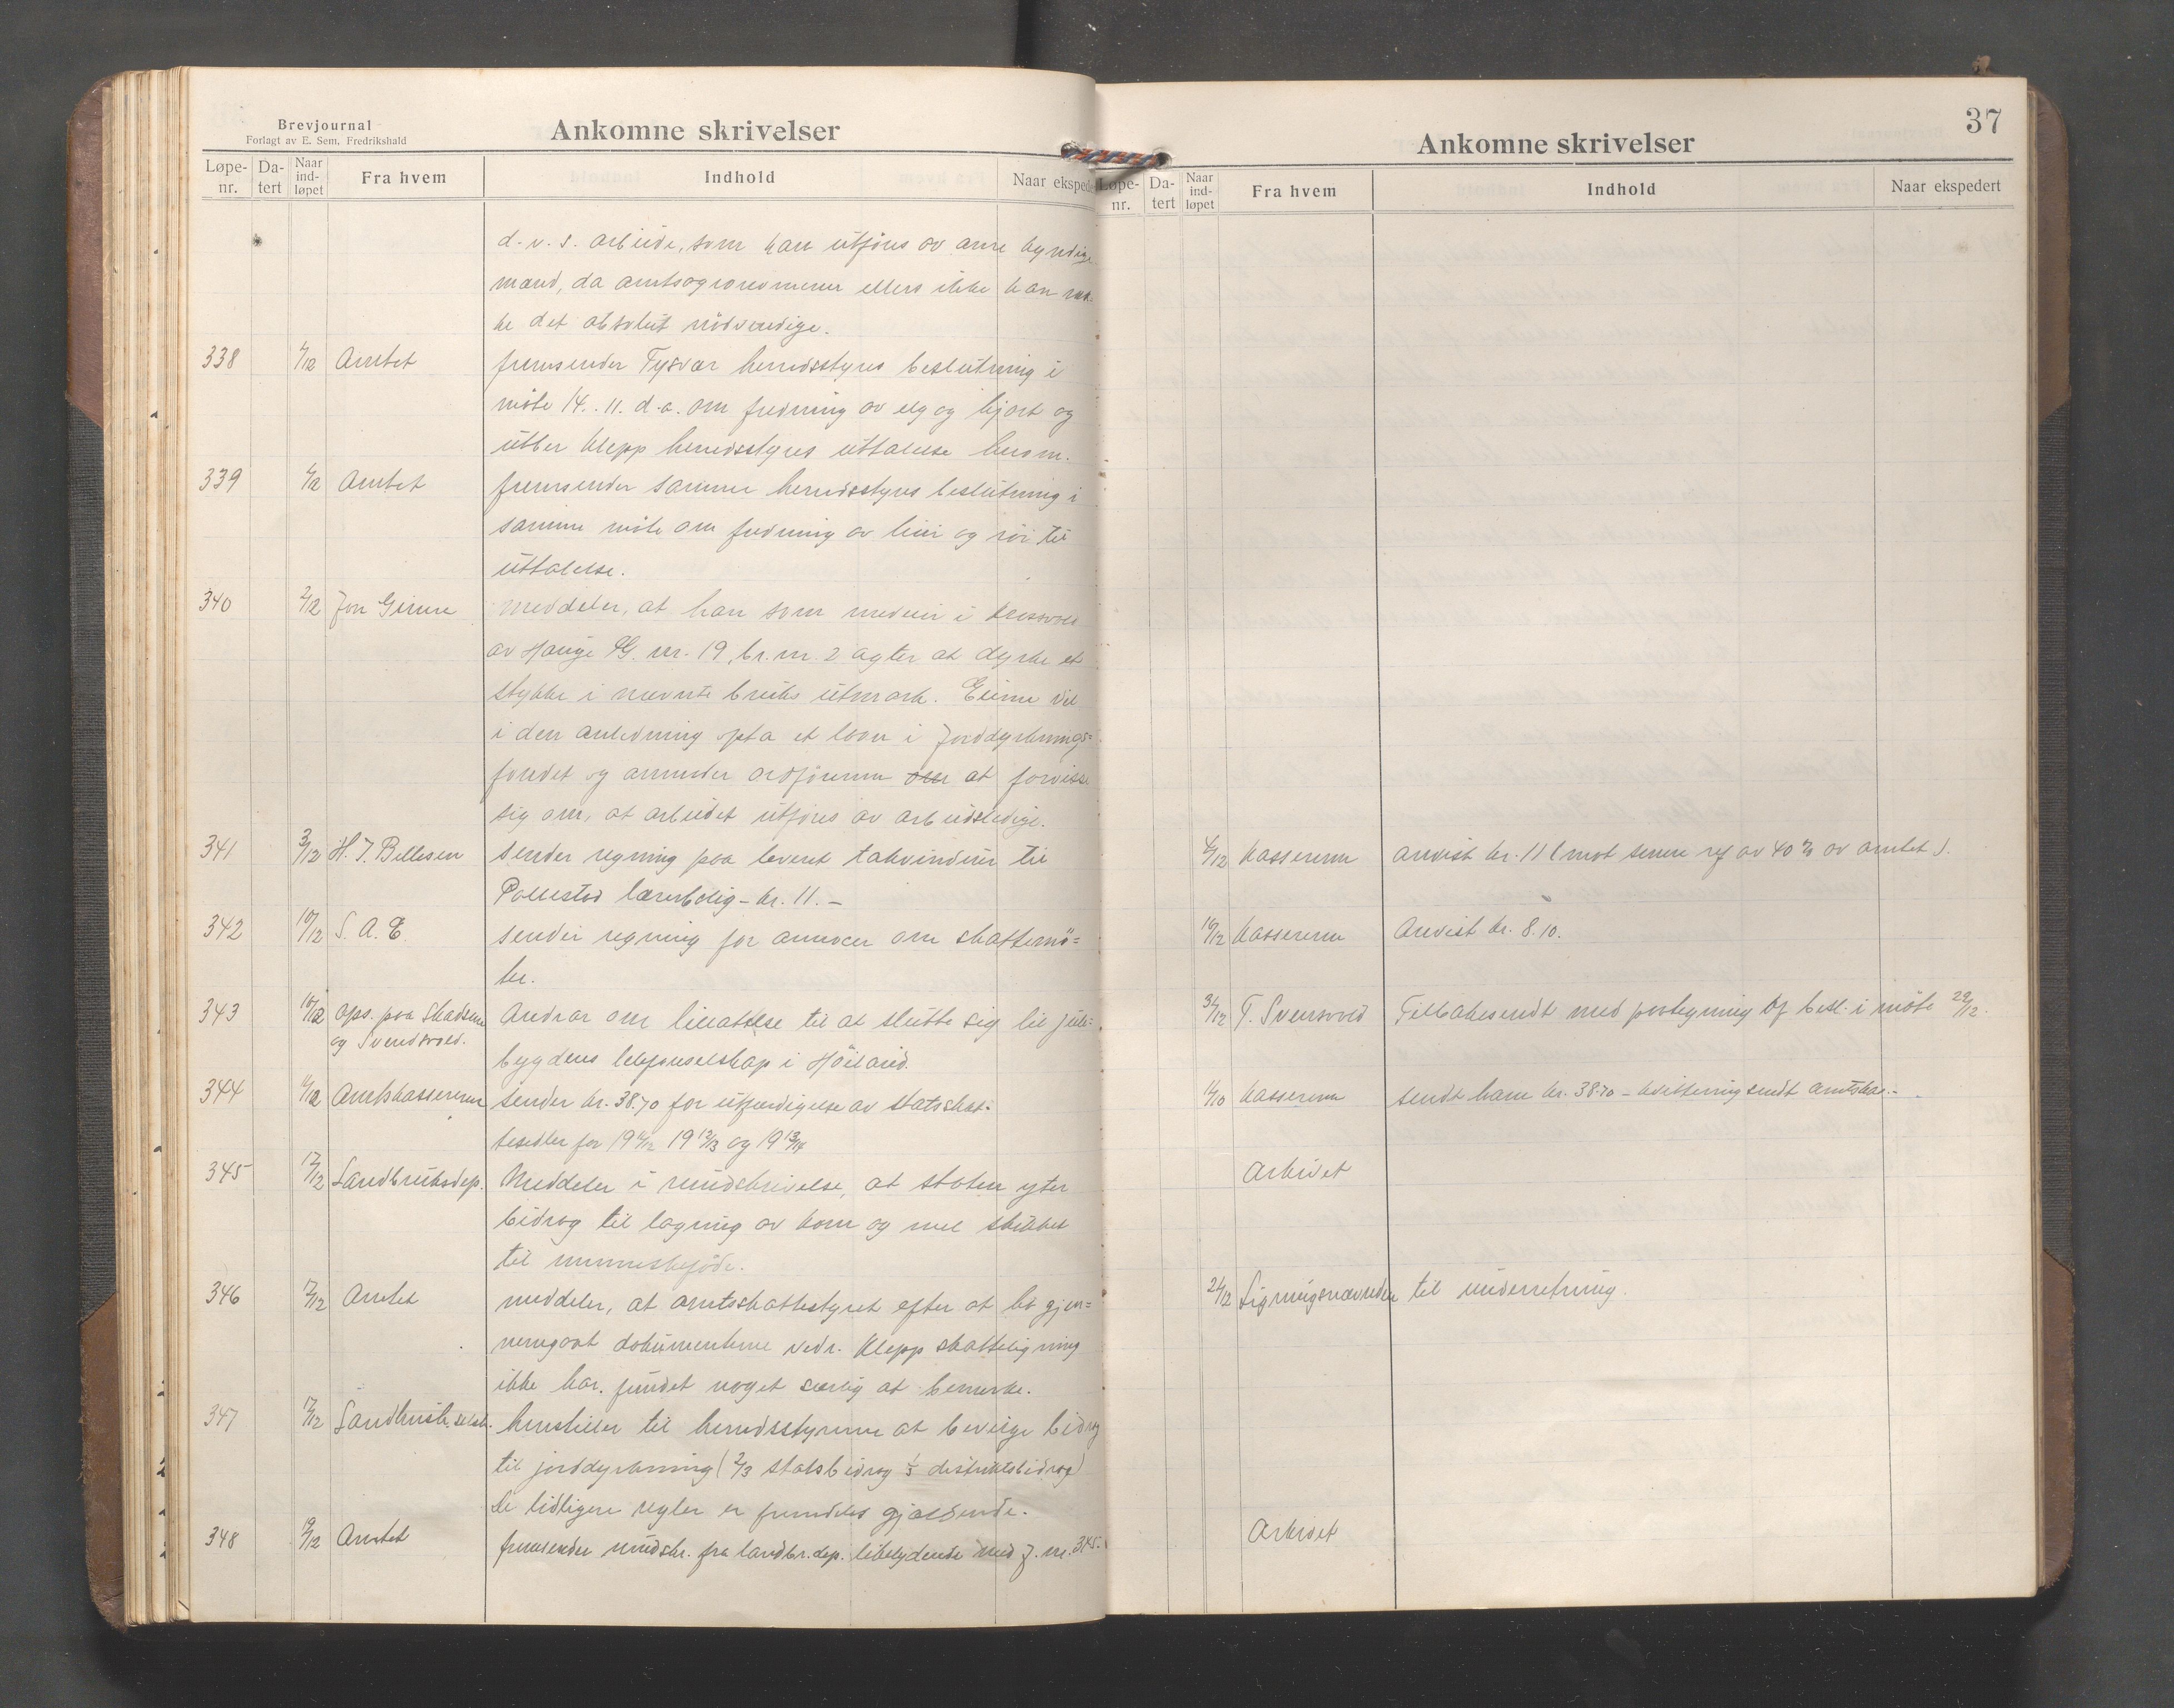 Brevjournal
Forlagt av E. Sem, Fredrikshald
Ankomne skrivelser
Løpe-nr. Da-tert Naar ind-løpet Fra hvem Indhold Naar eksped
d.v.s. arbeide, som kan utføres av anre kyndige
mænd, da amtsagronomerne ellers ikke kan ræk
ke det absolut nödvendige.
338 Amtet fremsender Tysvær herredsstyres beslutning i
möte 14.11. d.a. om fredning av elg og hjort og
utber Klepp herredsstyres uttalelse herom.
339 Amtet fremsender samme herredsstyres beslutning i
samme möte om fredning av til
uttalelse.
340 2/12 Jon meddeler, at han som medeier i
av Hauge G. nr. 19, br. nr. 2 agter at dyrke et
stykke i nævnte bruks utmark. vil
i den anledning opta et laan i Jorddyrknings=
fondet og anmoder ordföreren om at forvisse
sig om, at arbeidet utföres av arbeidsledige.
341 3/12 H. J. Bellesen sender regning paa leveret takvinduer til
Pollestad lærerbolig - kr. 11.-
342 10/12 S. A. E. sender regning for annocer om skattemö=
ter.
343 10/12 Ops. paa Skadsem
og Svendsvold. Andrar om tillatelse til at slutte sig til
bygdens telefonselskap i Höiland.
344 11/12 Amtskassereren sender kr. 38.70 for utfærdigelse av statsskat=
tesedler for 19 11/12 19 12/13 og 19 13/14
345 17/12 Landbruksdep. Meddeler i rundskrivelse, at staten yter
bidrag til lagring av korn og mel skikket
til menneskeføde.
346 17/12 Amtet meddeler, at amtsskattestyret efter at ha gjen=
nemgaat dokumenterne vedr. Klepp skatteligning
ikke har fundet noget særlig at bemerke.
347 17/12 Landhush. selsk. henstiller til herredsstyrerne at bevilge bidrag
til jorddyrkning (2/3 statsbidrag 1/3 distriktsbidrag)
De tidligere regler er fremdeles gjældende.
348 19/12 Amtet fremsender rundskr. fra landbr.dep. likelydende med J. nr. 345.
37
Ankomne skrivelser
Løpe-nr. Da-tert Naar ind-løpet Fra hvem Indhold Naar ekspedert
4/12 Kassereren anvist kr. 11 (mot senere ref av 40 % av amtet).
10/12 Kassereren Anvist kr. 8.10.
31/12 T. Svensvold Tilbakesendt med paategning af besl. i möte 29/12.
11/10 Kassereren sendt ham kr. 38.70 - kvittering sendt amtskas.-
Arkivet
21/12 Ligningsnævnden til underretning.
Arkivet